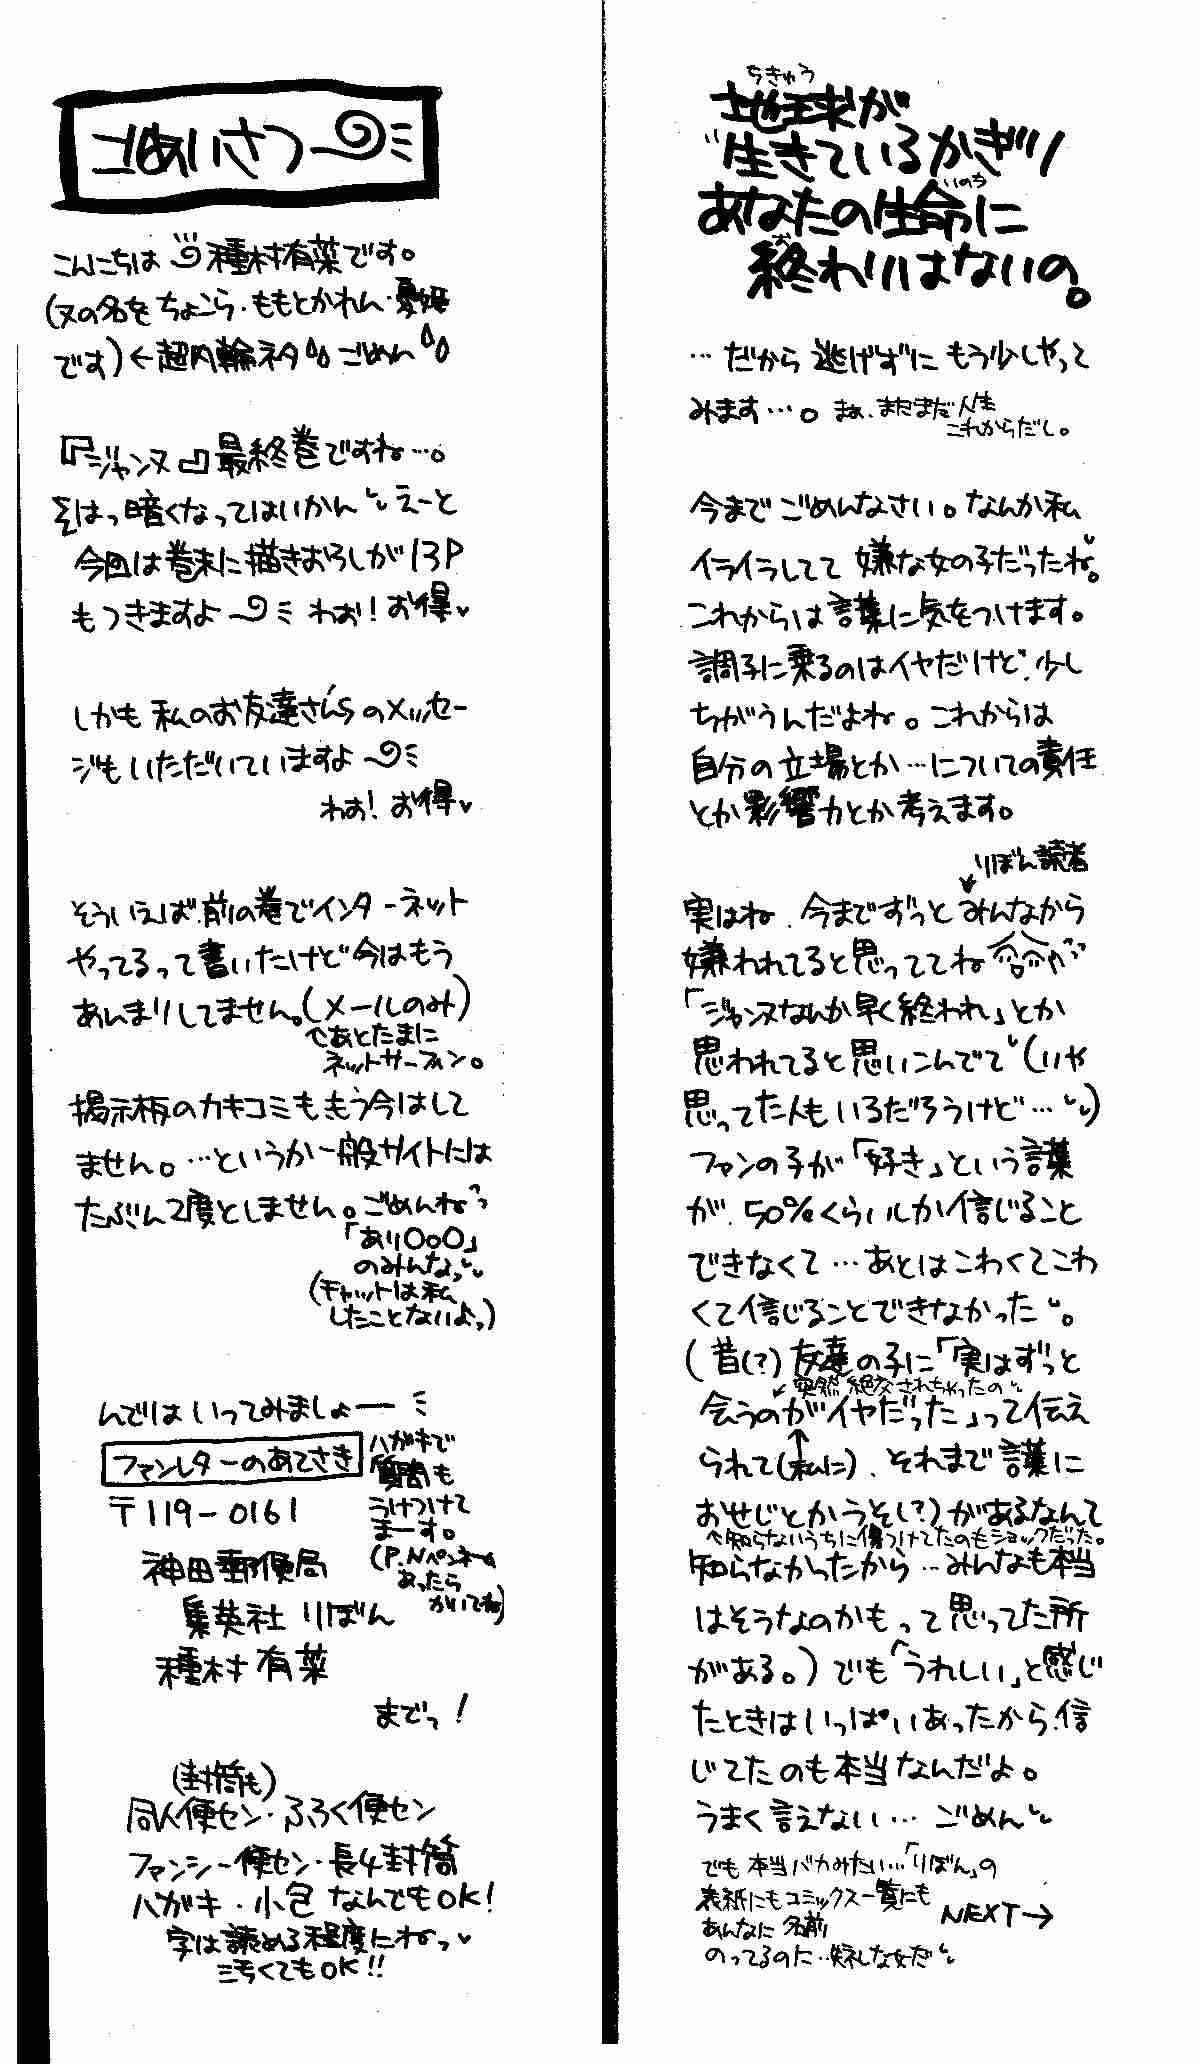 ごあいさつ〜
こんにちは 種村有菜です。
(又の名を ちょこら・ももとかれん・愛媛
です)←超内輪ネタ ごめん
『ジャンヌ』最終巻ですね…。
はっ暗くなってはいかん えーと
今回は巻末に描きおろしが13P
もつきますよ〜 わお!お得♥
しかも 私のお友達さん'sのメッセー
ジもいただいていますよ〜
わお! お得♥
そういえば.前の巻でインターネット
やってるって書いたけど今はもう
あんまりしてません。(メールのみ)
↑あとたまに
ネットサーフィン。
掲示板のカキコミももう今はして
ません。…というか一般サイトには
たぶん2度としません。ごめんねっ
「あり〇〇〇」
のみんなっ
(チャットは私
したことないよっ)
んでは いってみましょー
ファンレターのあてさき
ハガキで
質問も
うけつけて
まーす。
(P.Nペンネーム
あったら
かいてね)
〒119-0161
神田郵便局
集英社 りぼん
種村有菜
までっ!
(封筒も)
同人便セン・ふろく便セン
ファンシー便セン・長4封筒
ハガキ・小包 なんでもOK!
字は読める程度にねっ♥
汚くてもOK!!
ちきゅう
地球が
生きているかぎり
いのち
あなたの生命に
お
終わりはないの。
…だから 逃げずに もう少しやって
みます…。まぁ、まだまだ人生
これからだし。
今まで ごめんなさい。なんか私
イライラしてて 嫌な女の子だったね。
これからは言葉に気をつけます。
調子に乗るのはイヤだけど.少し
ちがうんだよね。これからは
自分の立場とか…についての責任
とか影響力とか考えます。
りぼん読者
実はね.今までずっとみんなから
嫌われてると思っててね
「ジャンヌなんか早く終われ」とか
思われてると思いこんでて(いや
思ってた人もいるだろうけど…)
ファンの子が「好き」という言葉
が.50%くらいしか信じること
できなくて…あとはこわくてこわ
くて信じることできなかった。
(昔(?)友達の子に「実はずっと
突然 絶交されちゃったの
会うのがイヤだった」って伝え
られて(私に)、それまで言葉に
おせじとかうそ(?)があるなんて
↑知らないうちに傷つけてたのもショックだった。
知らなかったから…みんなも本当
はそうなのかもって思ってた所
がある。)でも「うれしい」と感じ
たときはいっぱいあったから.信
じてたのも本当なんだよ。
うまく言えない…ごめん
でも 本当バカみたい…「りぼん」の
表紙にもコミックス一覧にも
あんなに 名前
のってるのに…失礼な女だ
NEXT→